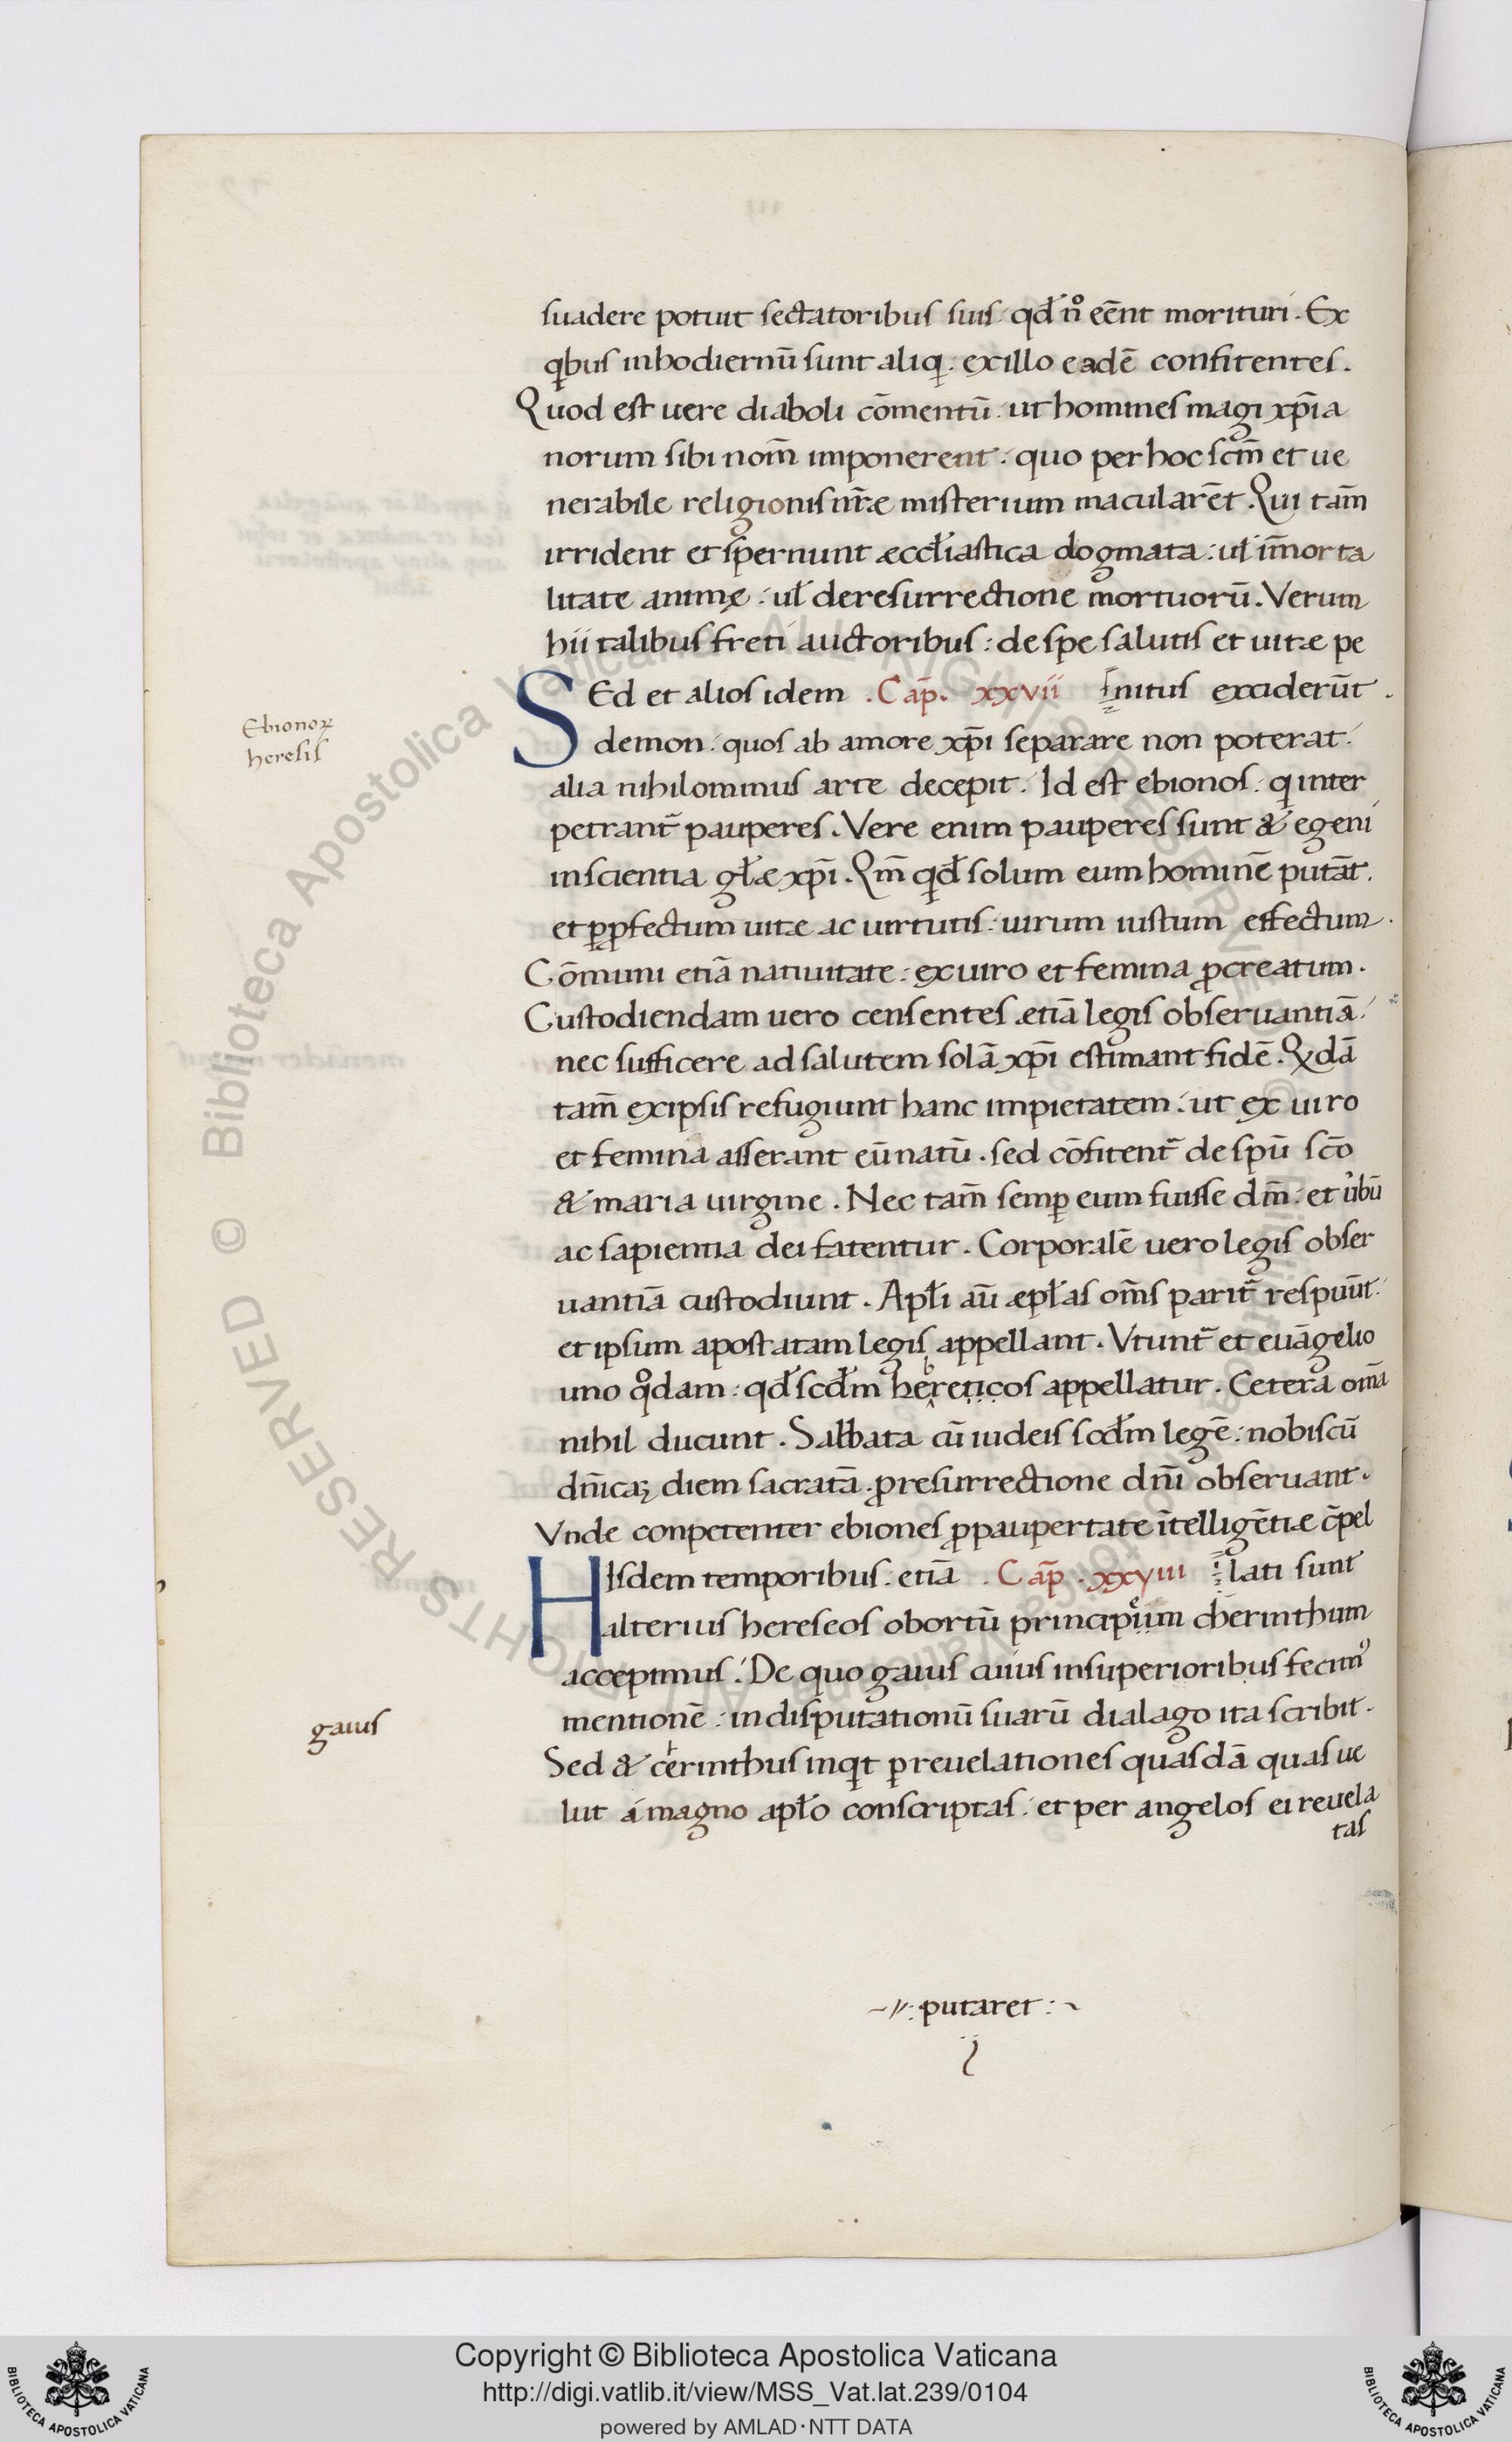 suadere potuit sectatoribus suis: qđ n̊ eēnt morituri. Ex
qbus inhodiernū sunt aliq: exillo eadē confitentes.
Quod est uere diaboli cōmentū: ut homines magi xp̄ia
norum sibi nom̄ imponerent: quo per hoc scm̄ et ue
nerabile religionis nr̄æ misterium macularēt. Qui tam̄
irrident et spernunt æccl̄iastica dogmata: ul̄ īmorta
litate animę: ul̄ deresurrectione mortuorū. Verum
hii talibus freti auctoribus: de spe salutis et uitæ pe
SEd et alios idem . Cap̄. xxvii nitus exciderūt.
demon: quos ab amore xp̄i separare non poterat:
alia nihilominus arte decepit. Id est ebionos: q inter
petrant̄ pauperes. Vere enim pauperes sunt & egeni
inscientia gl̄æ xp̄i. Qm̄ qđ solum eum hominē putāt.
et ꝑꝓfectum uitæ ac uirtutis: uirum iustum effectum.
Cōmuni etiā natiuitate: exuiro et femina ꝓcreatum.
Custodiendam uero censentes ætiā legis obseruantiā:
nec sufficere ad salutem solā xp̄i estimant fidē. Qdā
tam̄ exipsis refugiunt hanc impietatem: ut ex uiro
et femina asserant eū natū. sed cōfitent̄ de spū sc̄o
& maria uirgine. Nec tam̄ semꝑ eum fuisse dm̄: et ūbū
ac sapientia dei fatentur. Corporalē uero legis obser
uantiā custodiunt. Apl̄i aū æpl̄as om̄s parit̄ respuūt:
et ipsum apostatam legis appellant. Vtunt̄ et euāgelio
uno qͦdam: qđ scđm hereticos appellatur. Cetera om̄a
nihil ducunt. Sabbata cū iudeis scđm legē: nobiscū
dn̄icaꝫ diem sacratā. ꝓresurrectione dn̄i obseruant.
Vnde conpetenter ebiones ꝓpaupertate ītelligētiæ c̄pel
HIsdem temporibus: etiā . Cap̄ . xxviii lati sunt
alterius hereseos obortū principium cherinthum
accepimus. De quo gaius cuius insuperioribus fecimꝰ
mentionē: indisputationū suarū dialago ita scribit.
Sed & cerinthus inqt ꝑ reuelationes quasdā quas ue
lut a magno apl̄o conscriptas: et per angelos ei reuela
tas
Ebionoꝝ
heresis
gaius
putaret
Copyright © Biblioteca Apostolica Vaticana
http://digi.vatlib.it/view/MSS_Vat.lat.239/0104
powered by AMLAD·NTT DATA
BIBLIOTECA APOSTOLICA VATICANA
BIBLIOTECA APOSTOLICA VATICANA